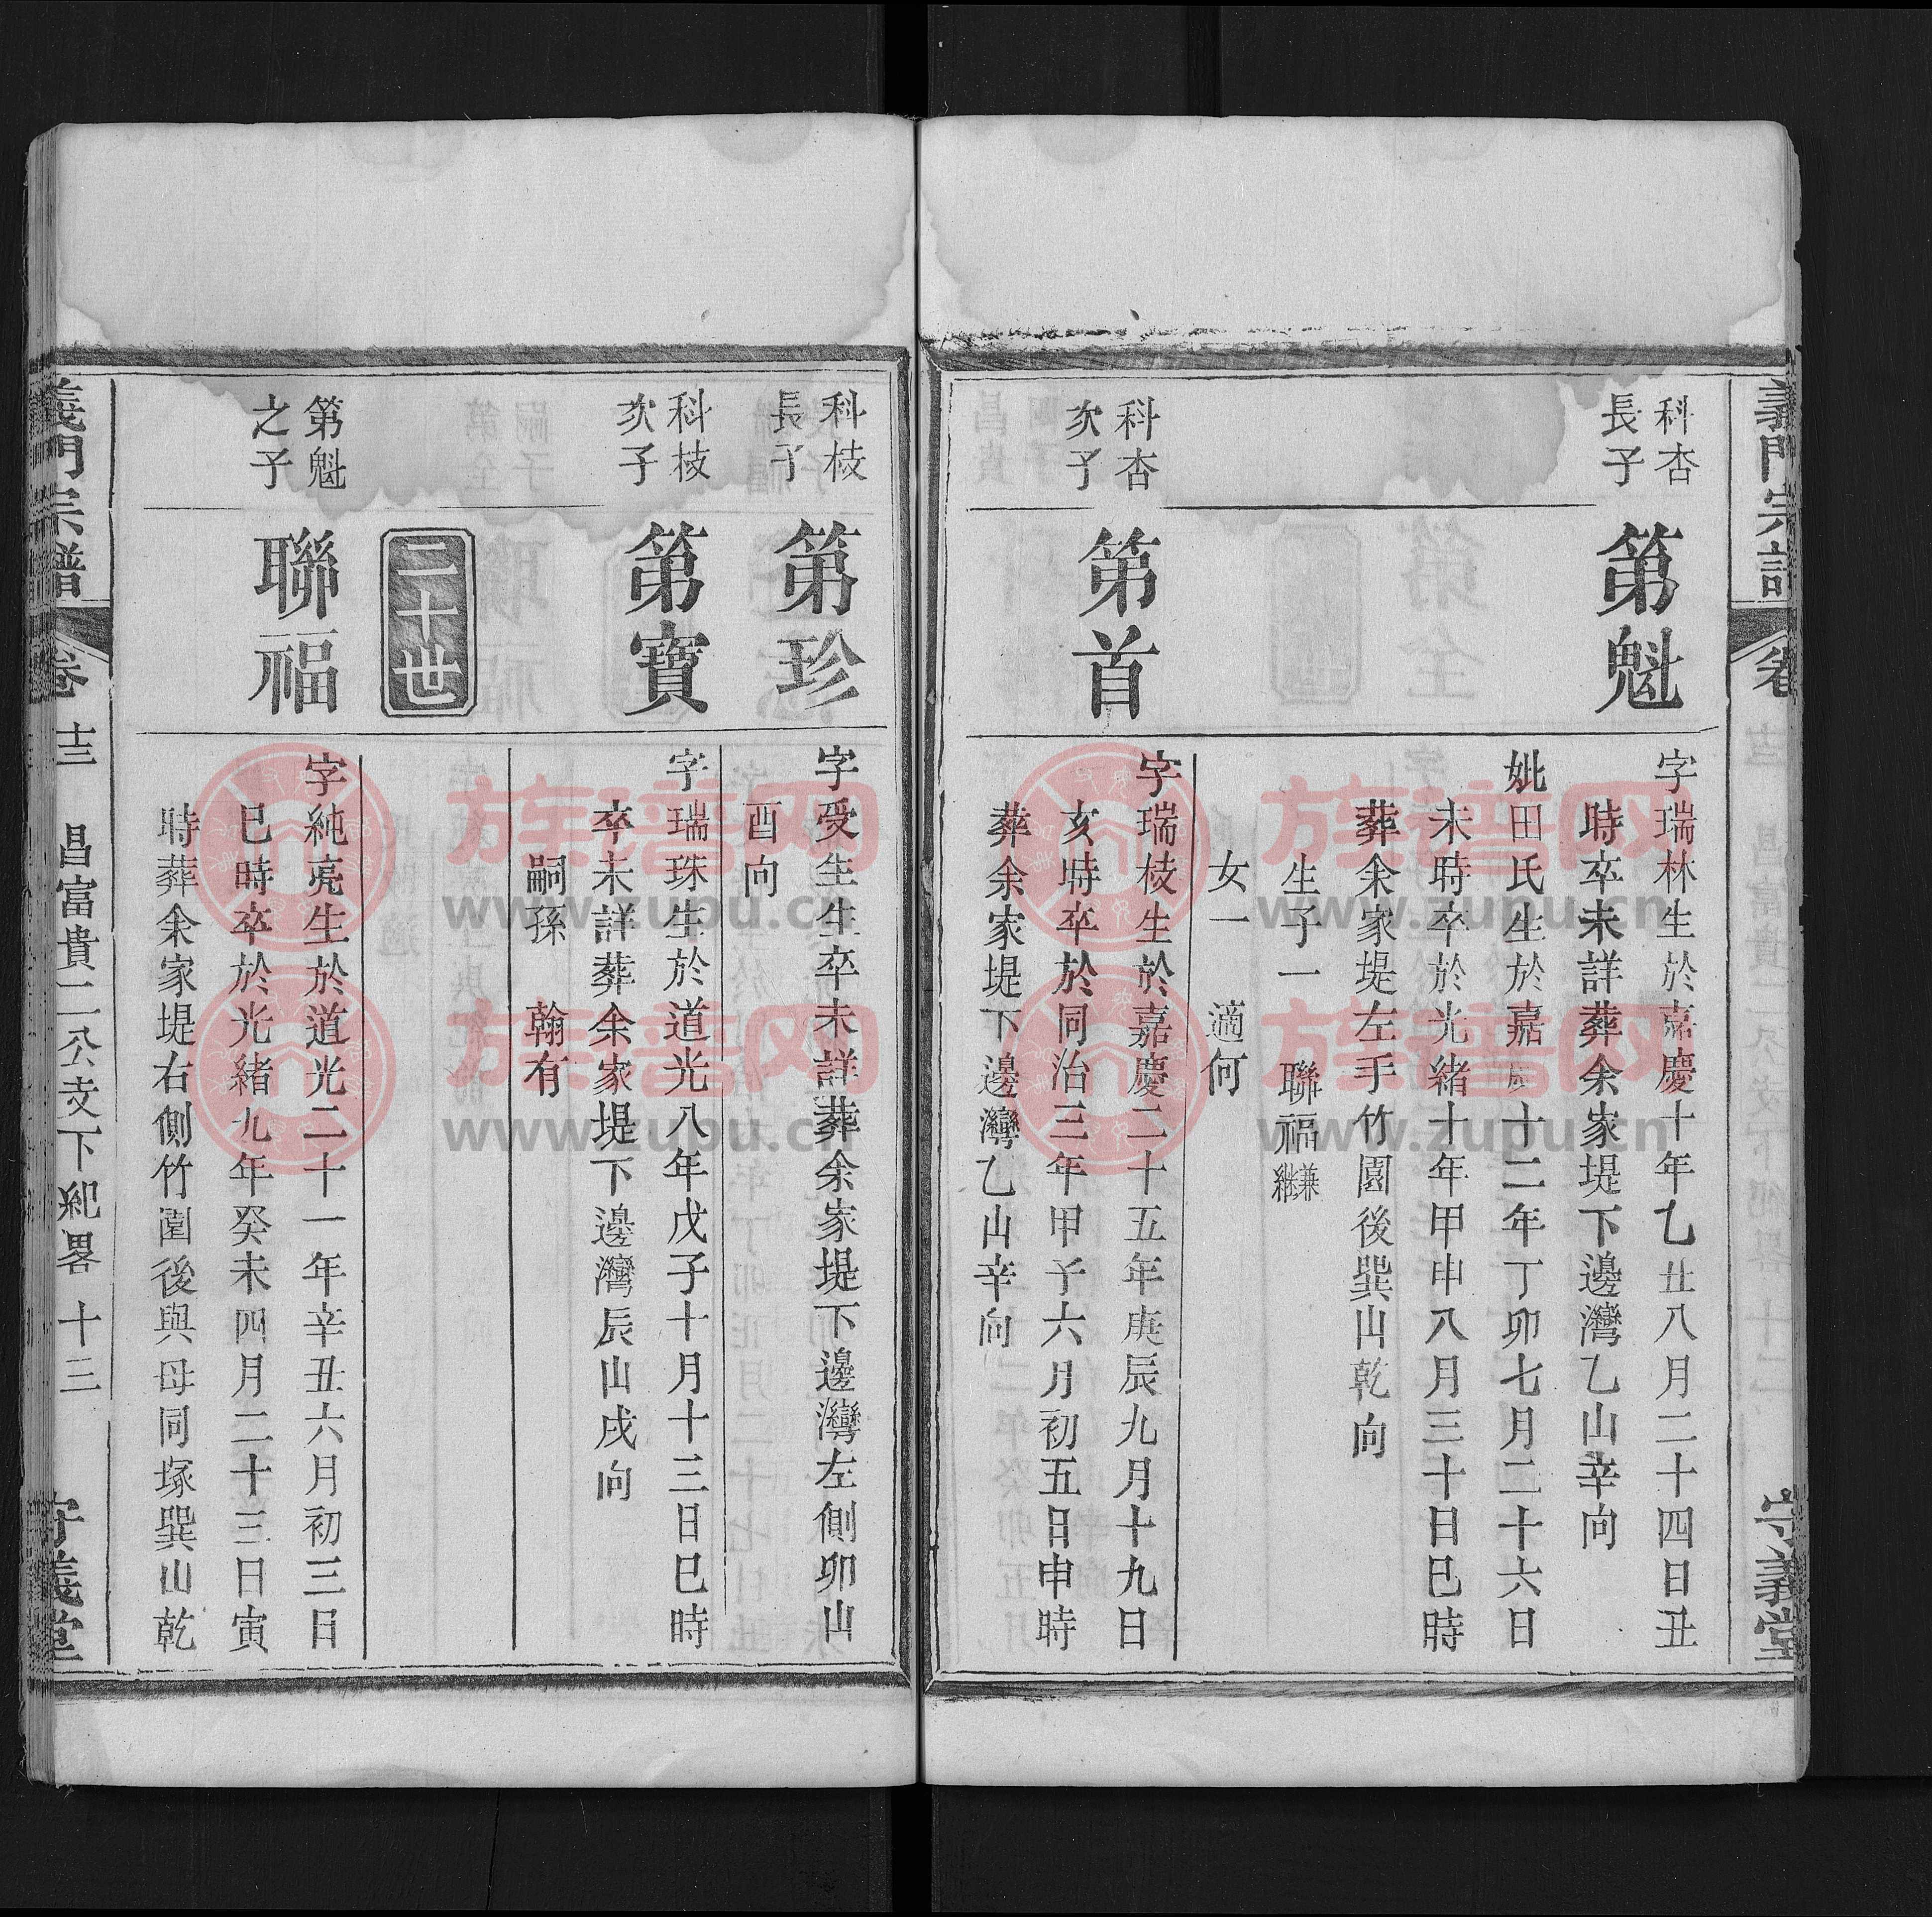 義門宗譜
卷
守義堂
科杏
長子
第魁
字瑞林生於嘉慶十年乙丑八月二十四日丑
時卒未詳葬余家堤下邊灣乙山辛向
妣田氏生於嘉慶十二年丁卯七月二十六日
未時卒於光緒十年甲申八月三十日巳時
葬余家堤左手竹園後巽山乾向
生子一 聯福兼繼
女一 適何
科杏
次子
第首
字瑞枝生於嘉慶二十五年庚辰九月十九日
亥時卒於同治三年甲子六月初五日申時
葬余家堤下邊灣乙山辛向
科枝
長子
第珍
字受生生卒未詳葬余家堤下邊灣左側卯山
酉向
科枝
次子
第寶
字瑞珠生於道光八年戊子十月十三日巳時
卒未詳葬余家堤下邊灣辰山戌向
嗣孫 翰有
二十世
第魁
之子
聯福
字純亮生於道光二十一年辛丑六月初三日
巳時卒於光緒九年癸未四月二十三日寅
時葬余家堤右側竹園後與母同塚巽山乾
義門宗譜
卷
十三
昌富貴二公支下紀畧
十三
守義堂
族譜网
www.zupu.cn
族譜网
www.zupu.cn
族譜网
www.zupu.cn
族譜网
www.zupu.cn